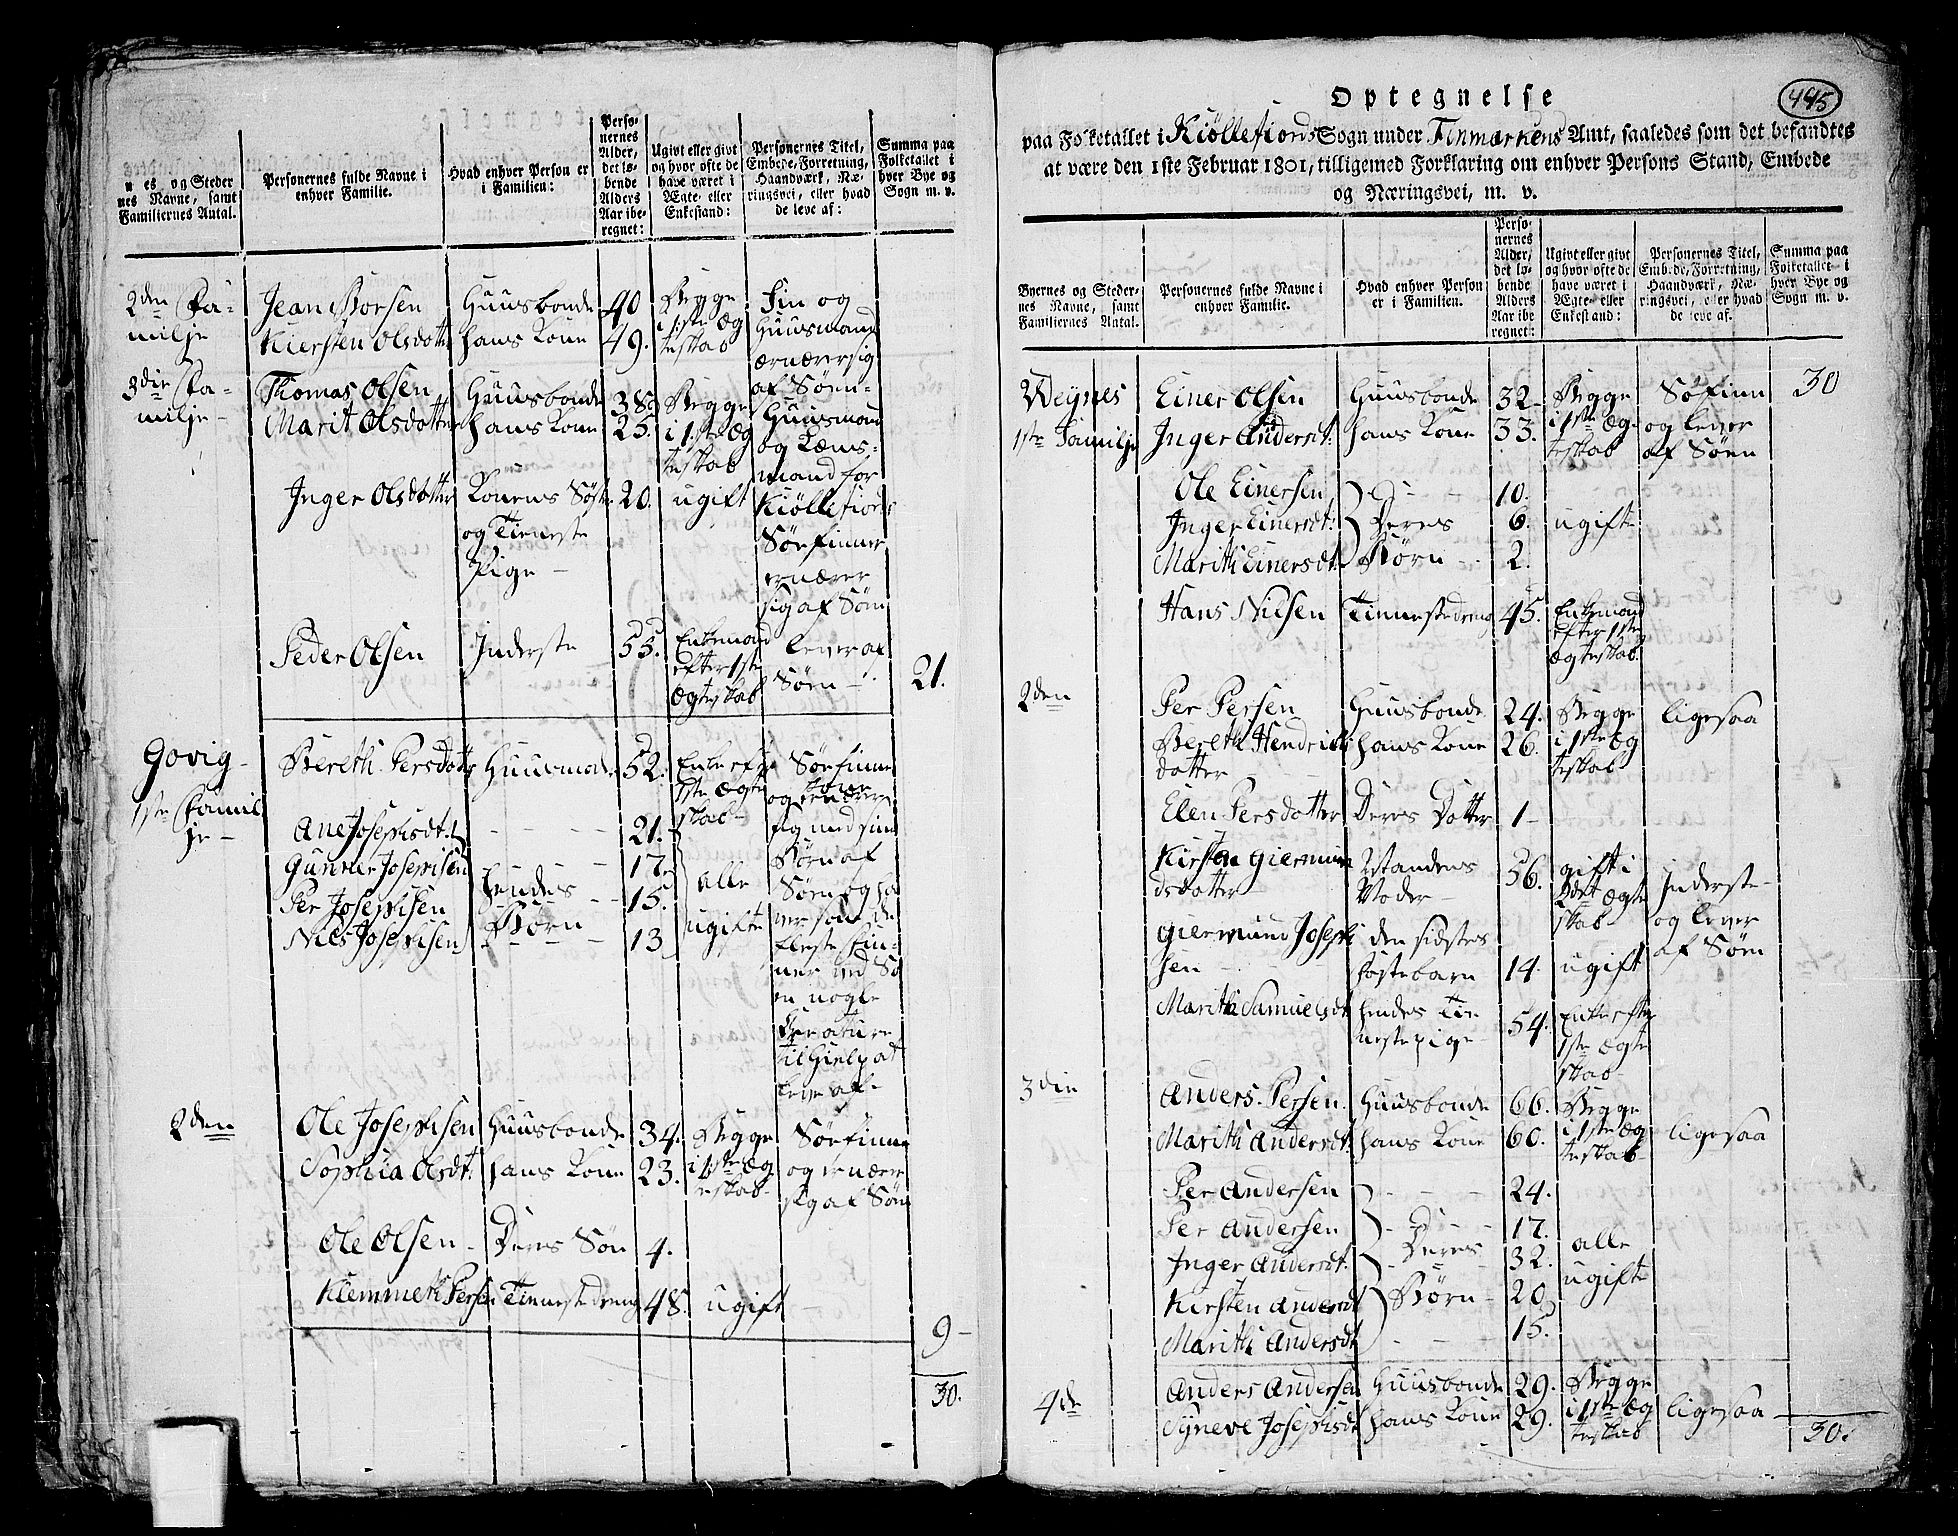 n es og Steder
nes Navne, samt
Familiernes Antal.
Personernes fulde Navne i
enhver Familie.
Hvad enhver Person er
i Familien:
Perso-
nernes
Alder,
det lø-
bende
Alders
Aar ibe-
regnet:
Ugivt eller givt
og hvor ofte de
have været i
Ægte- eller
Enkestand:
Personernes Titel,
Embede, Forretning,
Haandværk, Næ-
ringsvei, eller hvad
de leve af:
Summa paa
Folketallet i
hver Bye og
Sogn m. v.
2den Fa-
milje
Jean Morsen Huusbonde 40 Begge
i 1ste Æg
teskab
Kiersten Olsdotter hans Kone 49.
Fin og
Huusmand
ærnærer sig
af Søen-
3die Fa-
milje-
Thomas Olsen Huusbonde 38 Begge
i 1ste Æg
teskab
Marit Olsdotter hans Kone 25.
Huusmand
og Læns-
mand for
Kiøllefiords
Søefinner
ernærer
sig af Søen
Inger Olsdotter Konens Søster 20. ugift
og Tieneste
Pige -
Peder Olsen Inderste 55. Enkemand
efter 1ste
Ægteskab
lever af
Søen -
21.
Govig-
1ste Famil
je-
Bereth Persdotter Huusmoder 52. Enke efter
1ste Ægte
skab-
Søefinne
og ernærer
sig med sine
Børn af
Søen og ha
ver som de
fleste Fin-
ner ved Sø
en nogle
Kreature
til Hielp at
leve af-
Ane Josephsdt. - - - 21.
Gunner Josephsen - - - 17.
Per Josephsen Hendes 15. alle
Nils Josephsen Børn 13 ugifte
2den
Ole Josephsen Huusbonde 34. Begge
i 1ste Æg
teskab-
Sophia Olsdt. hans Kone 23.
Søefinne
og ernærer
sig af Søen
Ole Olsen- Deres Søn 4.
Klemmeth Persen Tienestedreng 48. ugift -
9-
30.
445
Optegnelse
paa Folketallet i Kiøllefiords Sogn under Finmarkens Amt, saaledes som det befandtes
at være den 1ste Februar 1801, tilligemed Forklaring om enhver Persons Stand, Embede
og Næringsvei, m. v.
Byernes og Steder-
nes Navne, samt
Familiernes Antal.
Personernes fulde Navne i
enhver Familie.
Hvad enhver Person
er i Familien.
Perso-
nernes
Alder,
det lø-
bende
Alders
Aar ibe-
regnet:
Ugivt eller givt
og hvor ofte de
have været i
Ægte- eller
Enkestand:
Personernes Titel,
Embede, Forretning,
Haandværk, Næ-
ringsvei, eller hvad
de leve af.
Summa paa
Folketallet i
hver Bye og
Sogn m. v.
Weynes
1ste Familje
Einer Olsen Huusbonde 32- Begge
i 1ste Æg-
teskab
Inger Andersdt. hans Kone 33.
Søfinn
og lever
af Søen
30
Ole Einersen - - - 10.
Inger Einersdt. Deres 6. ugifte
Marith Einersdt. Børn - 2.
Hans Nilsen Tienestedreng 45. Enkemand
efter 1ste
Ægteskab.
2den
Per Persen Huusbonde 24. Begge
i 1ste Æg
teskab
ligesaa
Bereth Hendrichs
dotter
hans Kone 26.
Elen Persdotter Deres Dotter 1-
Kirsten Giermun
dsdotter
Mandens
Moder-
56. gift i
2det Ægte
skab-
Inderste-
og lever
af Søen
Giermund Joseph
sen -
den sidstes
Fostebarn
14. ugift
Marith Samuelsdt. Hendes Tie
nestepige
54. Enke efter
1ste Ægte
skab
3die
Anders Persen. Huusbonde 66. Begge
i 1ste Æg
teskab-
ligesaa
Marith Andersdt. hans Kone 60.
Per Andersen - - - 24.
Per Andersen - - - 17.
Inger Andersdt. Deres 32. alle
Kirsten Andersdt Børn - 20 ugifte
Marith Andersdt - - - 15.
4de
Anders Andersen Huusbonde 29. Begge
i 1ste Æg
teskab
ligesaa
Syneve Josephsdt hans Kone 29.
30.